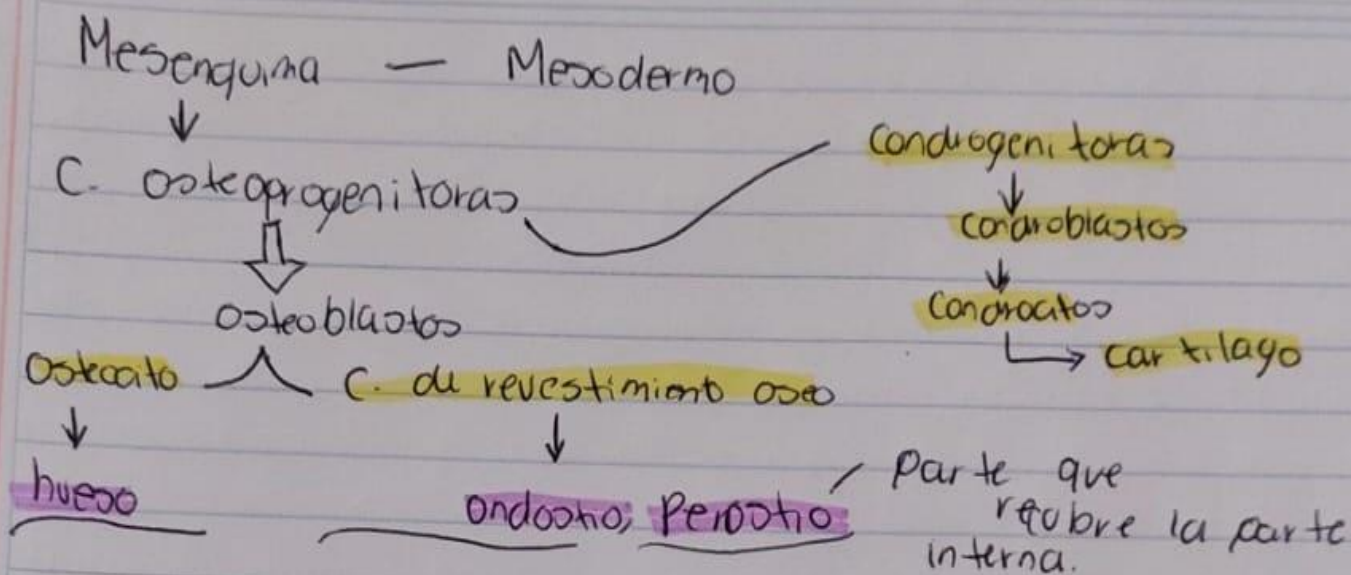 Mesenquima — Mesodermo
↓
C. osteoprogenitoras
⇩
osteoblastos
Osteocito C. de revestimiento oseo
↓ ↓
hueso
endostio; Periostio / Parte que
recubre la parte
interna.
Condrogenitoras
↓
condroblastos
↓
Condrocitos
↳ cartilago